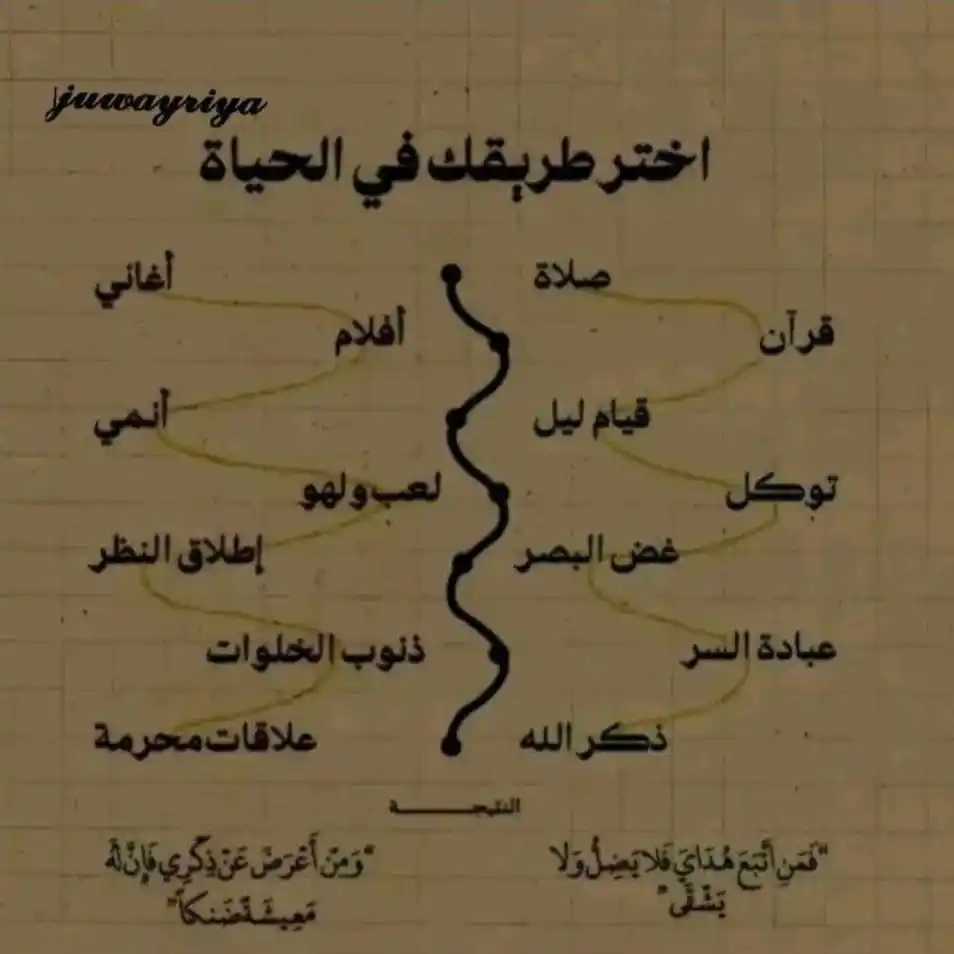 juwayriya
اختر طريقك في الحياة
صلاة
قرآن
قيام ليل
توكل
غض البصر
عبادة السر
ذكر الله
أغاني
أفلام
أنمي
لعب ولهو
إطلاق النظر
ذنوب الخلوات
علاقات محرمة
النتيجــــــة
"فَمَنِ اتَّبَعَ هُدَايَ فَلَا يَضِلُّ وَلَا
يَشْقَى"
"وَمَنْ أَعْرَضَ عَنْ ذِكْرِي فَإِنَّ لَهُ
مَعِيشَةً ضَنكاً"